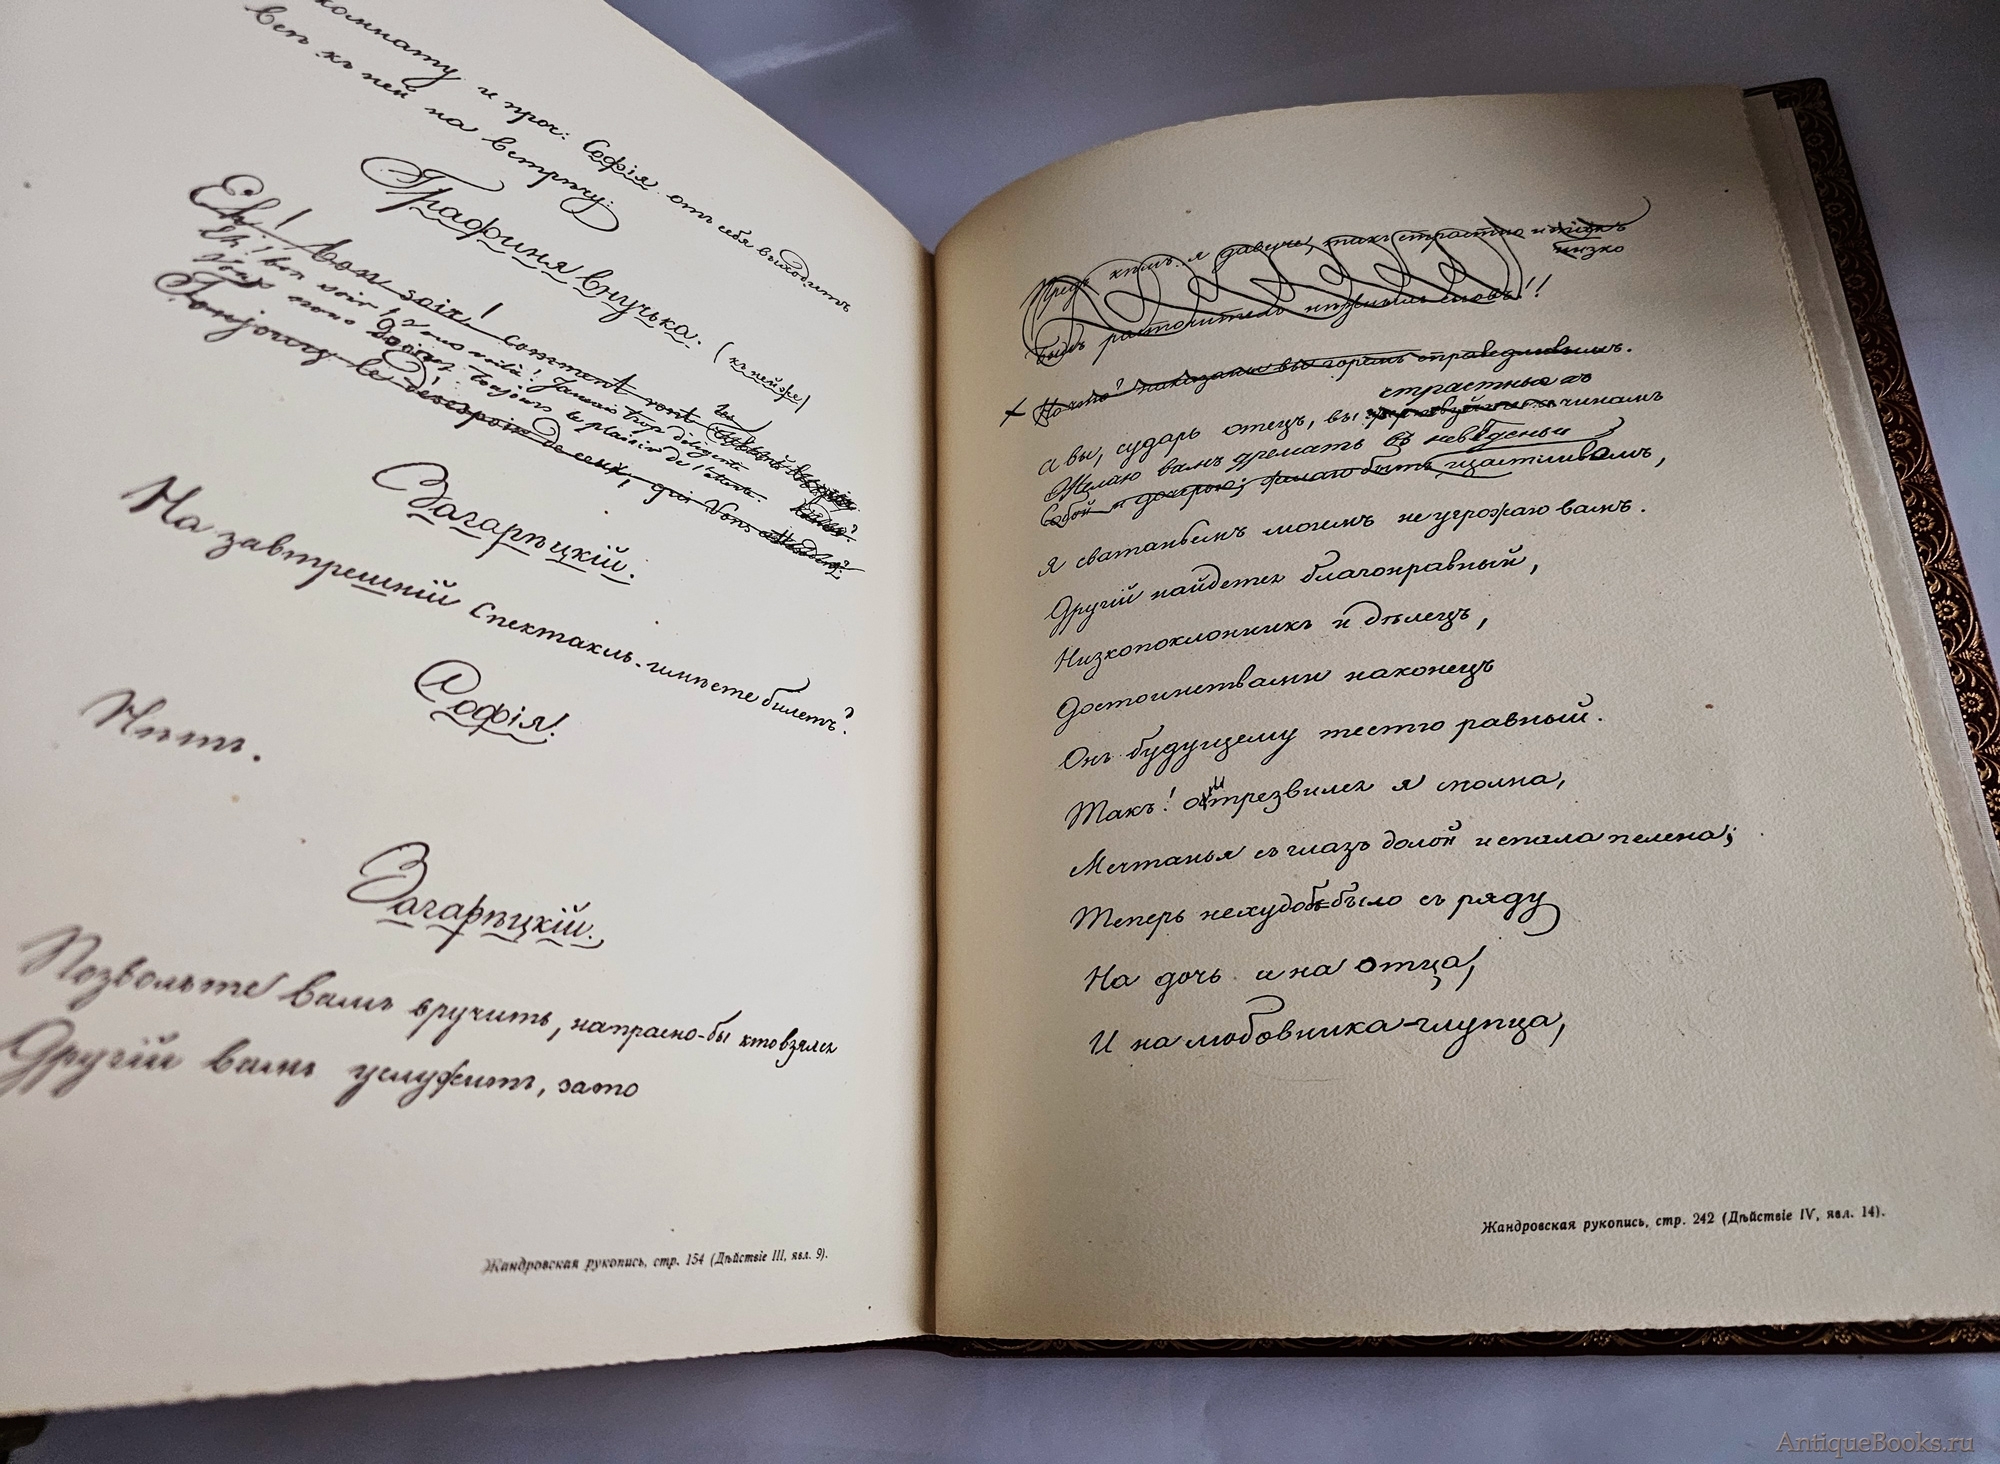 комнату и проч: Софія отъ себя выходитъ
Всѣ къ ней на встрѣчу:
Графиня внучька. (къ ней же)
Eh! bon soir! comment vont les
Eh! bon soir! Vous voilà! Jamais trop diligente
Vous nous donnez toujours le plaisir de l'attente.
Toujours le désespoir de ceux, qui vous attendent?
Загарѣцкій.
На завтрешній спектакль-имѣете билетъ?
Софія!
Нѣтъ.
Загарѣцкій.
Позвольте вамъ вручить, напрасно-бы кто взялся
Другій вамъ услужить, зато
Жандровская рукопись, стр. 154 (Дѣйствіе III, явл. 9).
Предъ кѣмъ я давиче, такъ страстно и низкъ
низко
Былъ расточитель нѣжныхъ словъ!!
+ Но что? наказаны вы горемъ справедливымъ.
страстные къ
А вы, сударь отецъ, вы чинамъ
Желаю вамъ дремать въ невѣденьи
Собой и дочерью; желаю быть щастливымъ,
Я сватаньемъ моимъ не угрожаю вамъ.
Другій найдется благонравный,
Низкопоклонникъ и дѣлецъ,
Достоинствами наконецъ
Онъ будущему тестю равный.
Такъ! отрезвился я сполна,
Мечтанья съ глазъ долой и спала пелена;
Теперь не худо-бъ было съ ряду
На дочь и на отца,
И на любовника-глупца,
Жандровская рукопись, стр. 242 (Дѣйствіе IV, явл. 14).
AntiqueBooks.ru